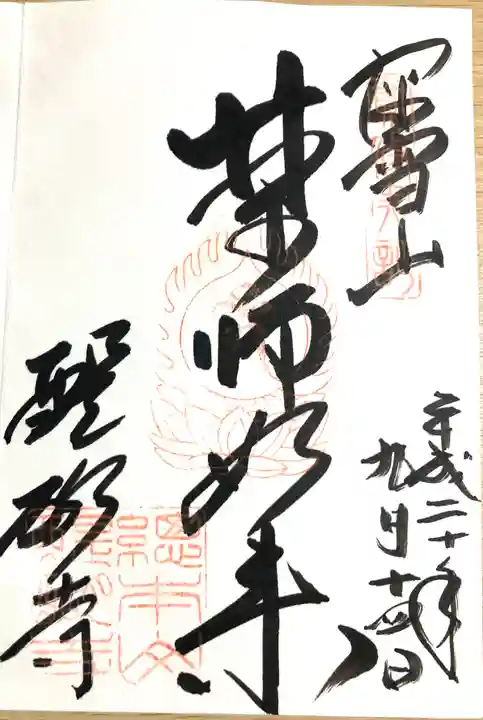 深雪山
薬師如来
醍醐寺
平成二十年
九月十四日